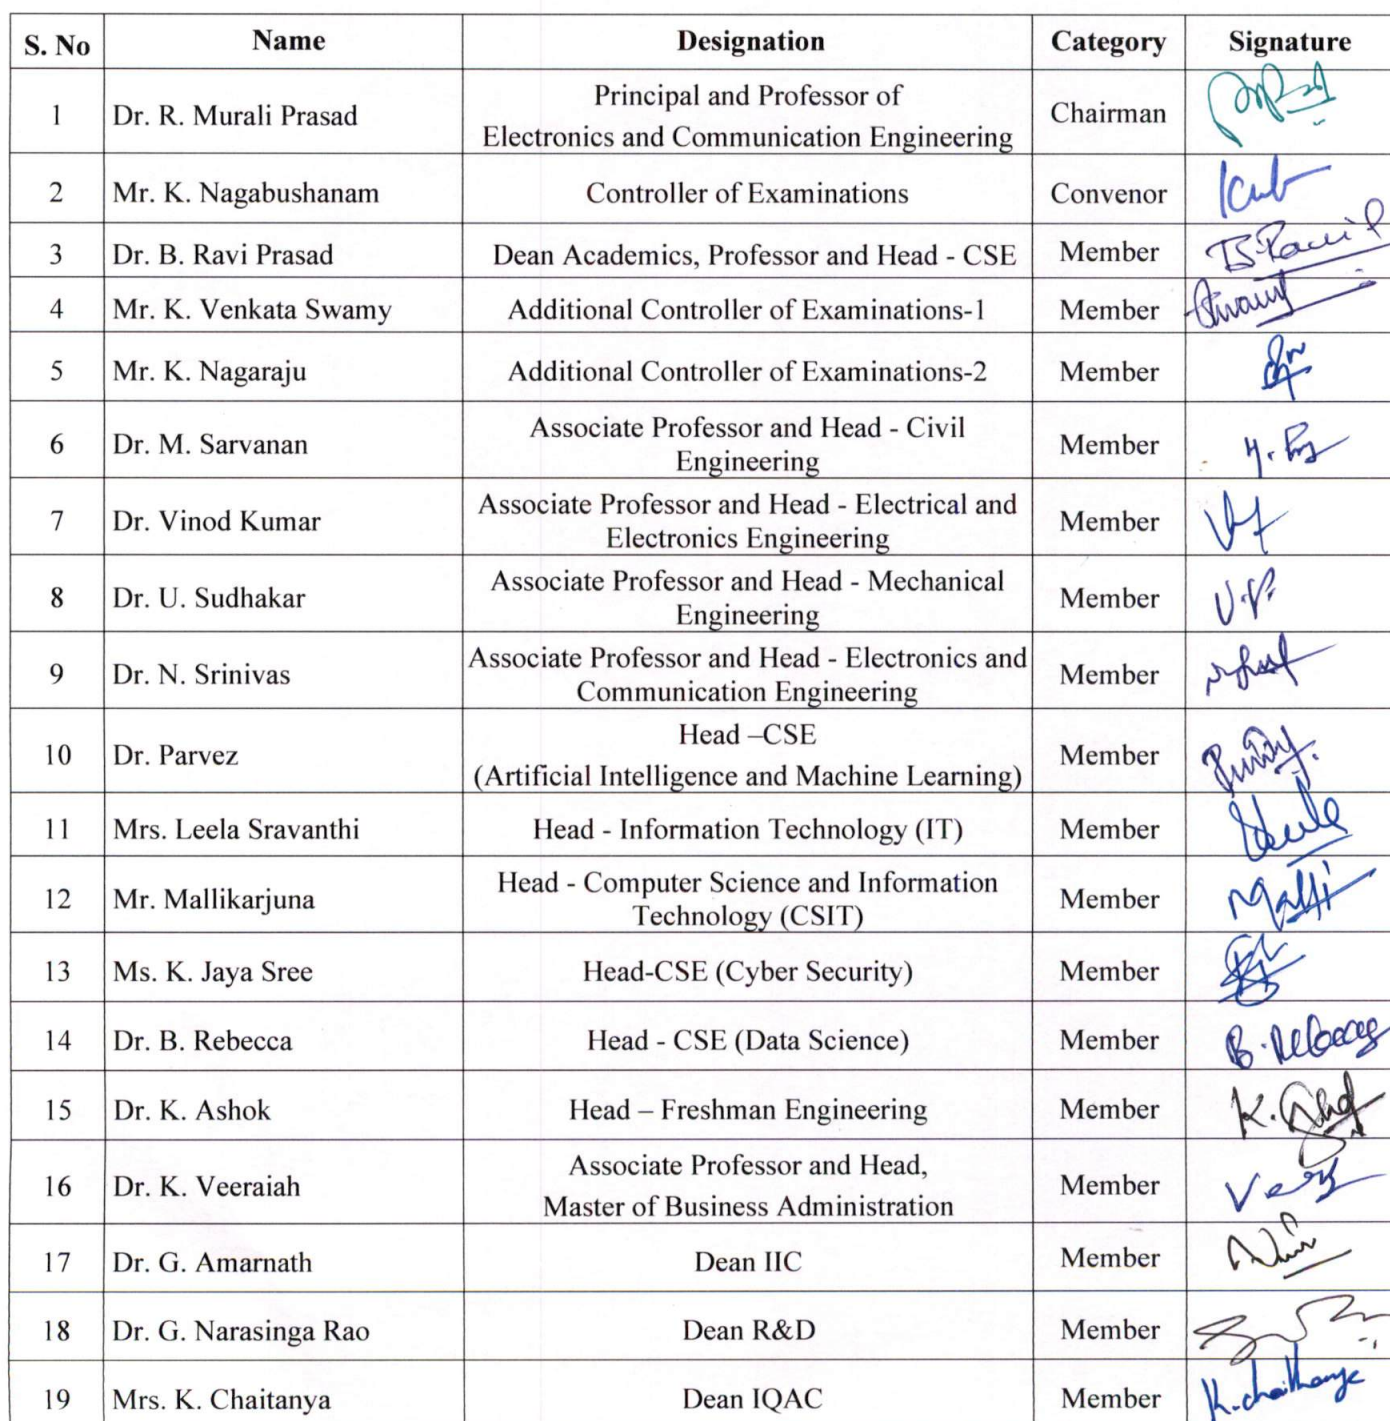 S. No Name Designation Category Signature
1 Dr. R. Murali Prasad Principal and Professor of
Electronics and Communication Engineering Chairman
2 Mr. K. Nagabushanam Controller of Examinations Convenor
3 Dr. B. Ravi Prasad Dean Academics, Professor and Head - CSE Member
4 Mr. K. Venkata Swamy Additional Controller of Examinations-1 Member
5 Mr. K. Nagaraju Additional Controller of Examinations-2 Member
6 Dr. M. Sarvanan Associate Professor and Head - Civil
Engineering Member
7 Dr. Vinod Kumar Associate Professor and Head - Electrical and
Electronics Engineering Member
8 Dr. U. Sudhakar Associate Professor and Head - Mechanical
Engineering Member
9 Dr. N. Srinivas Associate Professor and Head - Electronics and
Communication Engineering Member
10 Dr. Parvez Head –CSE
(Artificial Intelligence and Machine Learning) Member
11 Mrs. Leela Sravanthi Head - Information Technology (IT) Member
12 Mr. Mallikarjuna Head - Computer Science and Information
Technology (CSIT) Member
13 Ms. K. Jaya Sree Head-CSE (Cyber Security) Member
14 Dr. B. Rebecca Head - CSE (Data Science) Member B. Rebecca
15 Dr. K. Ashok Head – Freshman Engineering Member
16 Dr. K. Veeraiah Associate Professor and Head,
Master of Business Administration Member
17 Dr. G. Amarnath Dean IIC Member
18 Dr. G. Narasinga Rao Dean R&D Member
19 Mrs. K. Chaitanya Dean IQAC Member K. chaithanya